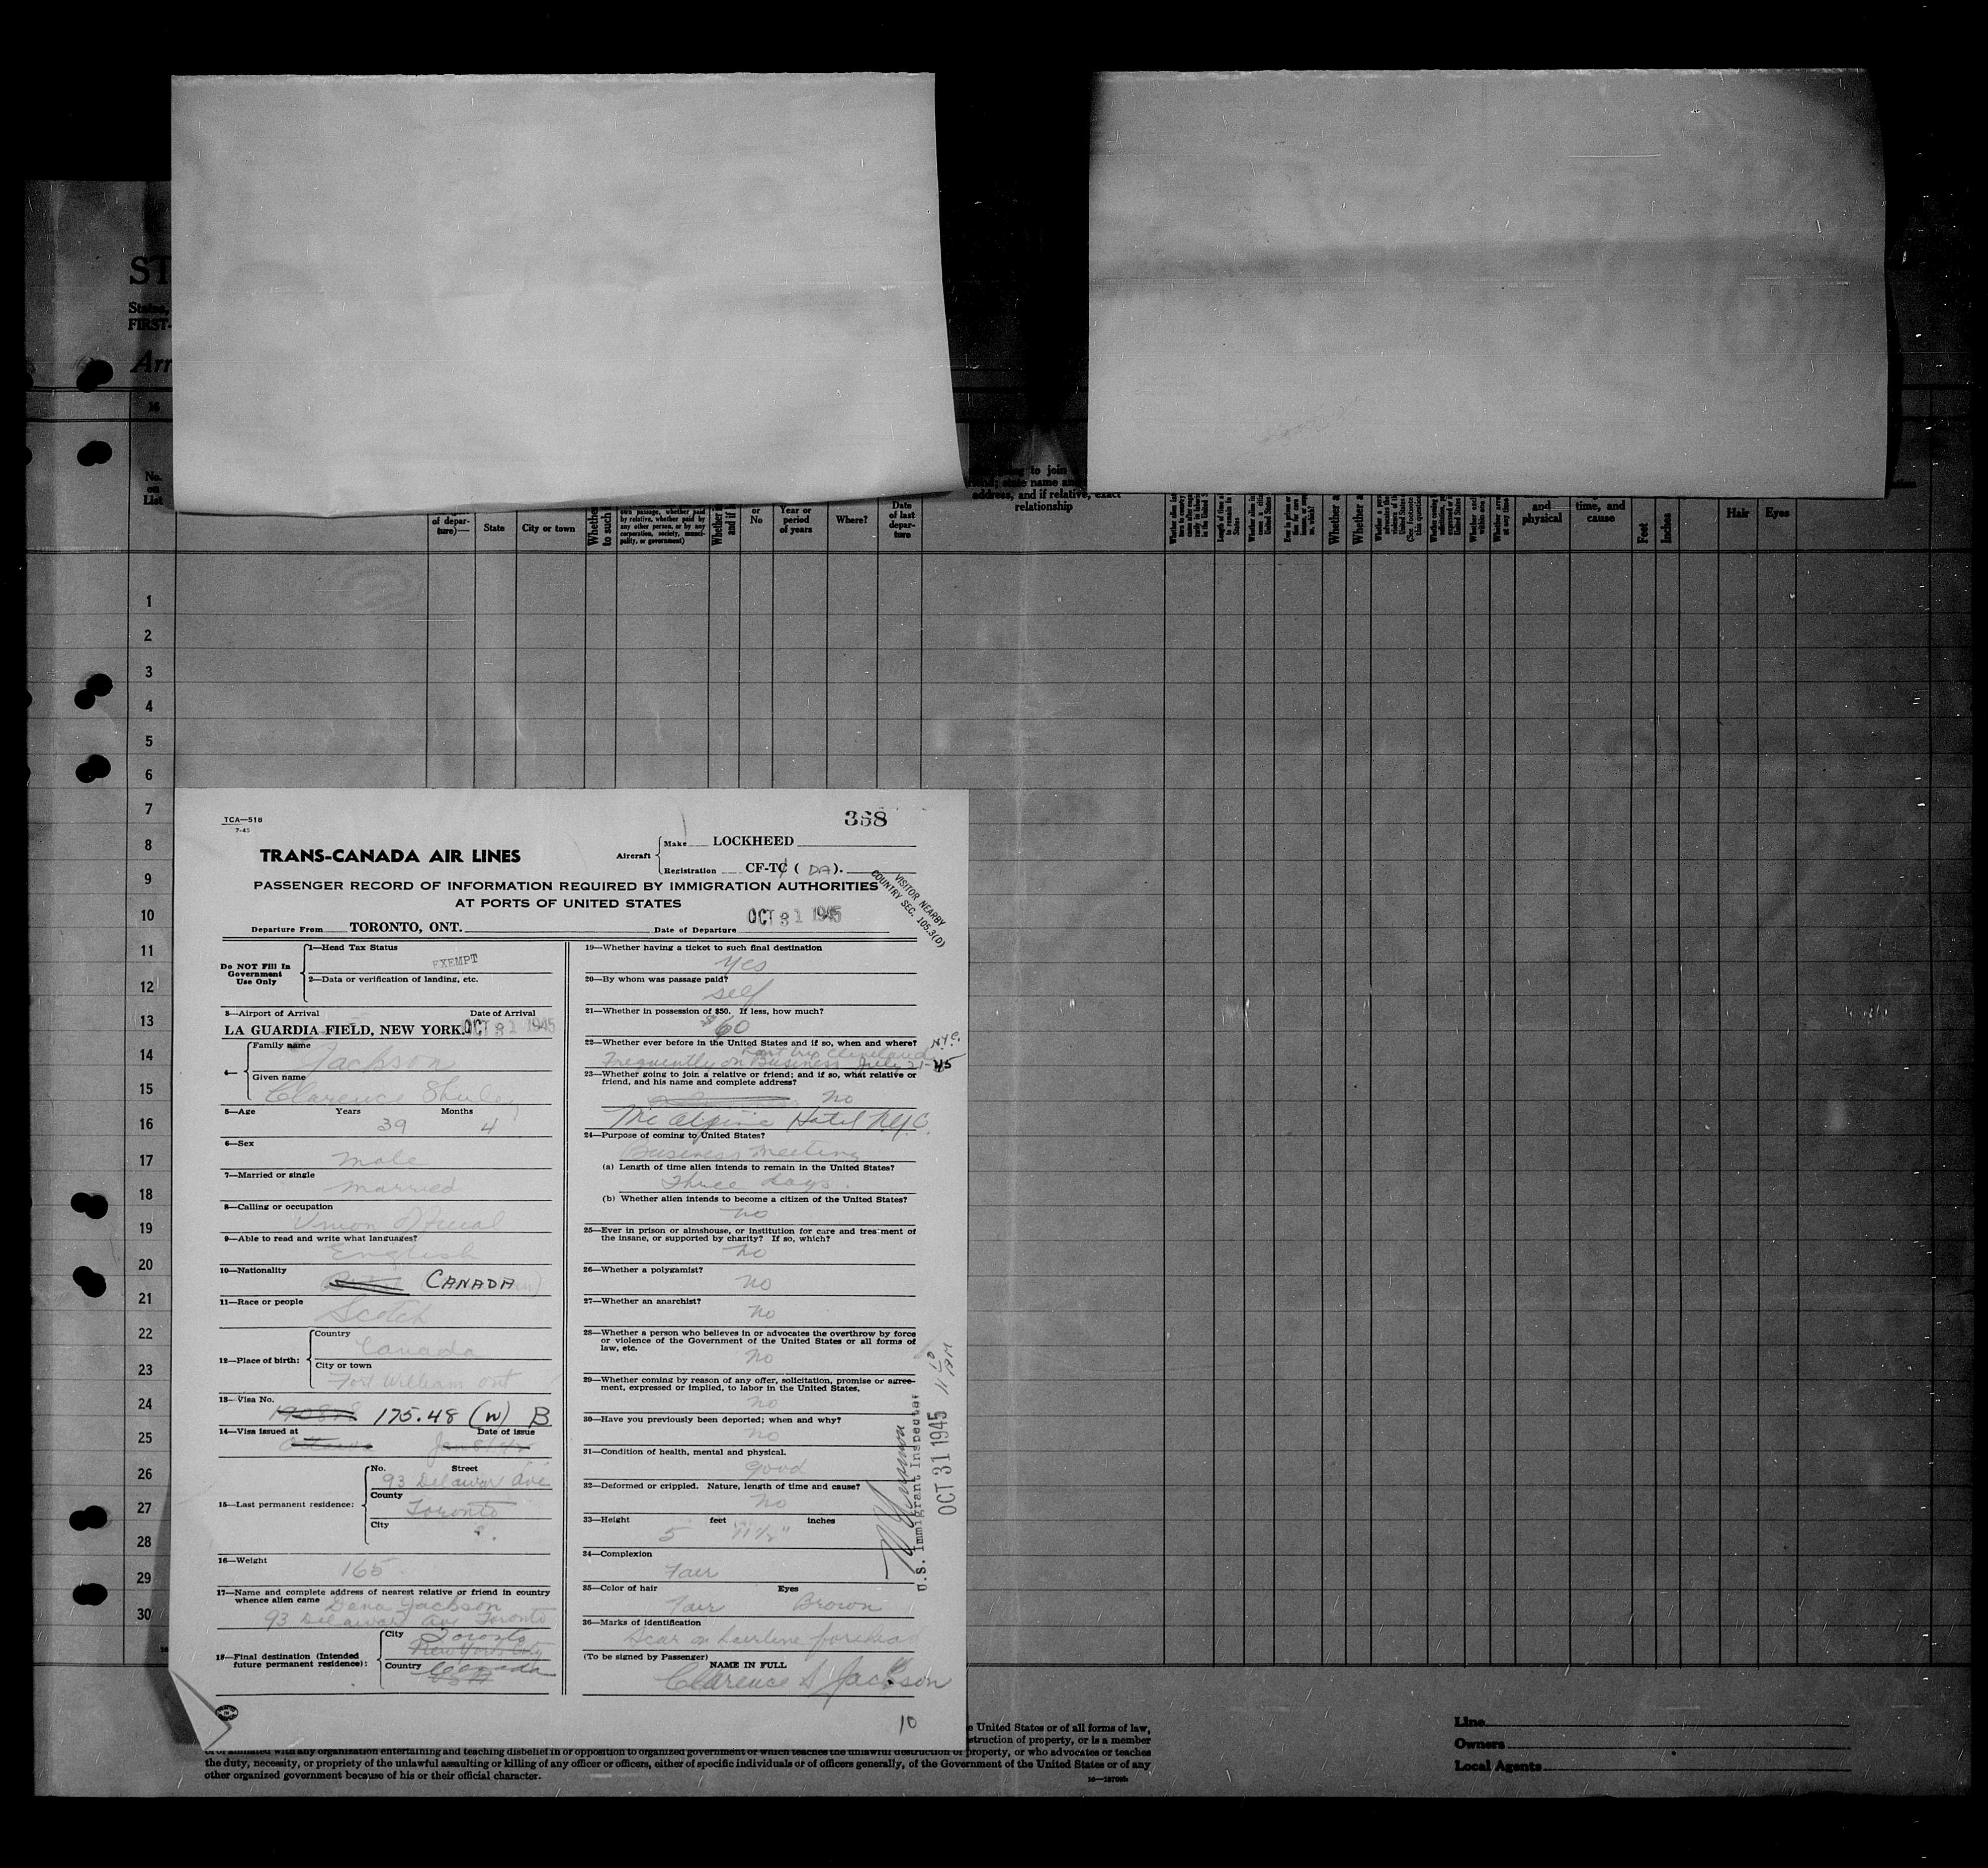 ST
States,
FIRST-
Arr
16
No.
on
List
of depar-
ture)—
State
City or town
Whether
to such
own passage, whether paid
by relative, whether paid by
any other person, or by any
corporation, society, munici-
pality, or government)
and if
or
No
Year or
period
of years
Where?
Date
of last
depar-
ture
to join
state name and
address, and if relative, exact
relationship
and
physical
time, and
cause
Feet
Inches
Hair
Eyes
1
2
3
4
5
6
7
8
9
10
11
12
13
14
15
16
17
18
19
20
21
22
23
24
25
26
27
28
29
30
TCA—518
7-45
368
TRANS-CANADA AIR LINES
Aircraft
Make LOCKHEED
Registration CF-TC ( DA ).
PASSENGER RECORD OF INFORMATION REQUIRED BY IMMIGRATION AUTHORITIES
AT PORTS OF UNITED STATES
VISITOR NEARBY
COUNTRY SEC. 105.3(D)
Departure From TORONTO, ONT. Date of Departure OCT 31 1945
Do NOT Fill In
Government
Use Only
1—Head Tax Status
EXEMPT
2—Data or verification of landing, etc.
3—Airport of Arrival Date of Arrival
LA GUARDIA FIELD, NEW YORK. OCT 31 1945
4—
Family name
Jackson
Given name
Clarence Shirley
5—Age Years Months
39 4
6—Sex
Male
7—Married or single
Married
8—Calling or occupation
Union Official
9—Able to read and write what languages?
English
10—Nationality
CANADA
11—Race or people
Scotch
12—Place of birth:
Country
Canada
City or town
Fort William Ont
13—Visa No.
175.48 (W) B
14—Visa issued at Date of issue
Ottawa
15—Last permanent residence:
No. Street
93 Delawar Ave
County
Toronto
City
16—Weight
165
17—Name and complete address of nearest relative or friend in country
whence alien came Dena Jackson
93 Delawar Ave Toronto
18—Final destination (Intended
future permanent residence):
City Toronto
New York City
Country Canada
USA
19—Whether having a ticket to such final destination
Yes
20—By whom was passage paid?
self
21—Whether in possession of $50. If less, how much?
60
22—Whether ever before in the United States and if so, when and where? N.Y.C.
Last trip Cleveland
Frequently on Business July 21-45
23—Whether going to join a relative or friend; and if so, what relative or
friend, and his name and complete address?
No
Mc Alpine Hotel N.Y.C.
24—Purpose of coming to United States?
Business Meeting
(a) Length of time alien intends to remain in the United States?
Three days.
(b) Whether alien intends to become a citizen of the United States?
No
25—Ever in prison or almshouse, or institution for care and treatment of
the insane, or supported by charity? If so, which?
No
26—Whether a polygamist?
No
27—Whether an anarchist?
No
28—Whether a person who believes in or advocates the overthrow by force
or violence of the Government of the United States or all forms of
law, etc.
No
29—Whether coming by reason of any offer, solicitation, promise or agree-
ment, expressed or implied, to labor in the United States.
No
30—Have you previously been deported; when and why?
No
31—Condition of health, mental and physical.
Good
32—Deformed or crippled. Nature, length of time and cause?
No
33—Height feet inches
5 11½"
34—Complexion
Fair
35—Color of hair Eyes
Fair Brown
36—Marks of identification
Scar on hairline forehead
(To be signed by Passenger)
NAME IN FULL
Clarence S Jackson
U.S. Immigrant Inspector
OCT 31 1945
10
e United States or of all forms of law,
struction of property, or is a member
of or affiliated with any organization entertaining and teaching disbelief in or opposition to organized government or which teaches the unlawful destruction of property, or who advocates or teaches
the duty, necessity, or propriety of the unlawful assaulting or killing of any officer or officers, either of specific individuals or of officers generally, of the Government of the United States or of any
other organized government because of his or their official character.
Line
Owners
Local Agents